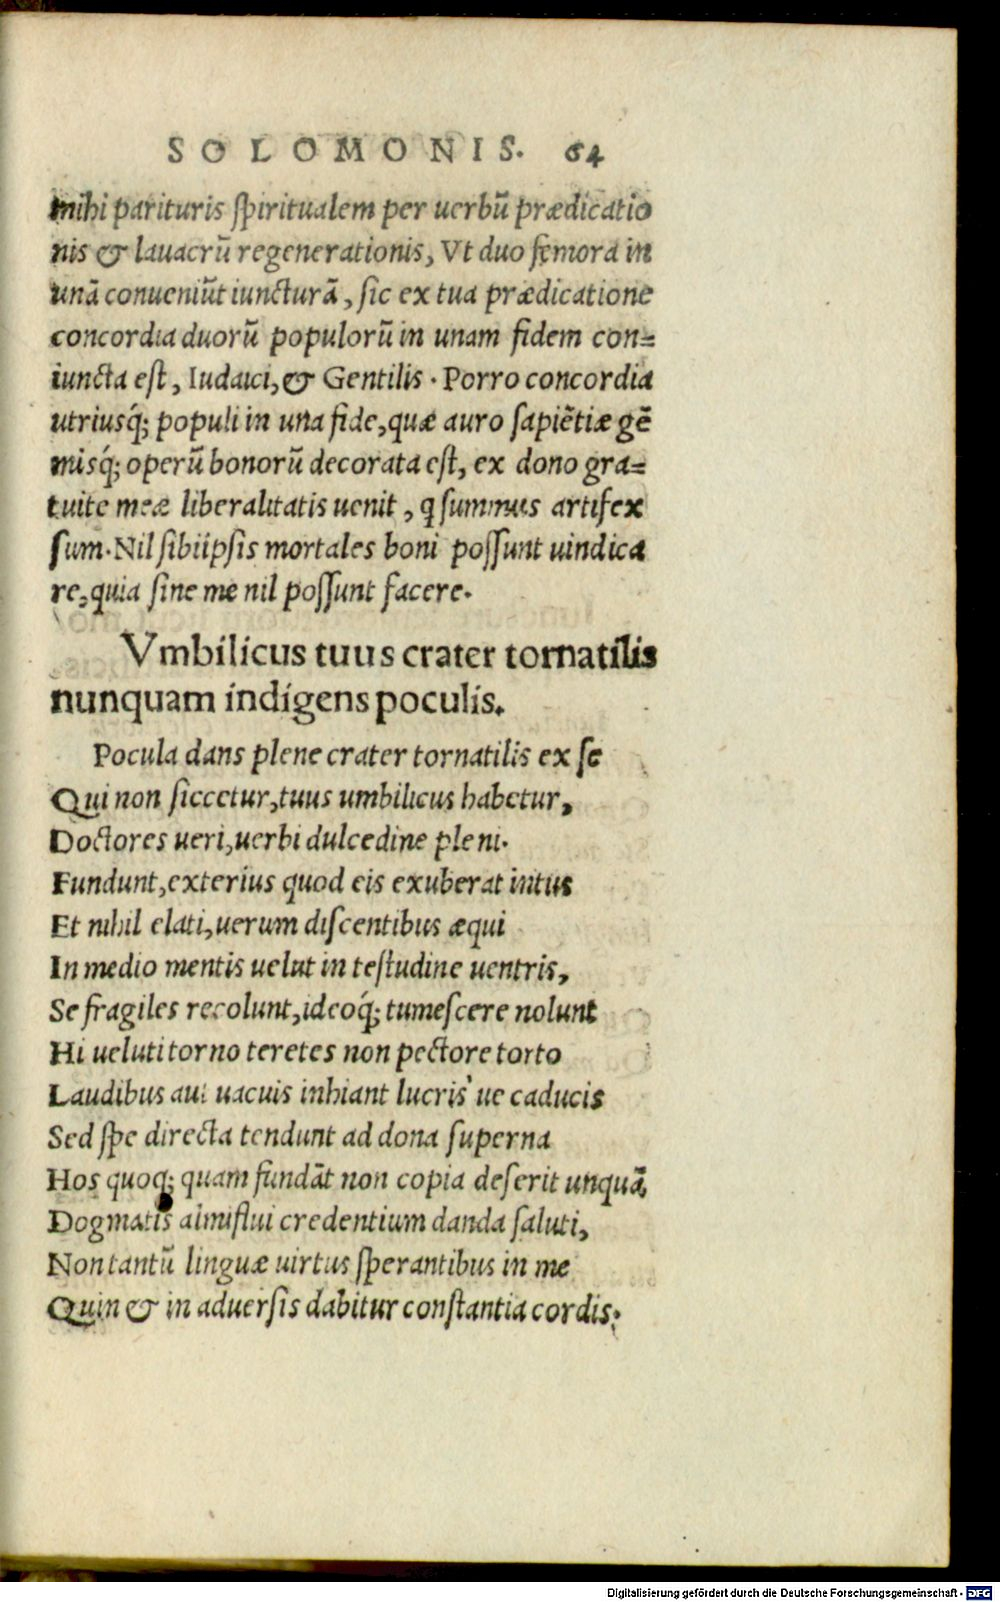 SOLOMONIS. 64
mihi parituris spiritualem per uerbũ prædicatio
nis & lauacrũ regenerationis, Vt duo femora in
unã conueniũt iuncturã, sic ex tua prædicatione
concordia duorũ populorũ in unam fidem con=
iuncta est, Iudaici, & Gentilis. Porro concordia
utriusq́; populi in una fide, quæ auro sapiẽtiæ gẽ
misq́; operũ bonorũ decorata est, ex dono gra=
tuite meæ liberalitatis uenit, q summus artifex
sum. Nil sibiipsis mortales boni possunt uindica
re, quia sine me nil possunt facere.
Vmbilicus tuus crater tornatilis
nunquam indigens poculis.
Pocula dans plene crater tornatilis ex se
Qui non siccetur, tuus umbilicus habetur,
Doctores ueri, uerbi dulcedine pleni.
Fundunt, exterius quod eis exuberat intus
Et nihil elati, uerum discentibus æqui
In medio mentis uelut in testudine uentris,
Se fragiles recolunt, ideoq́; tumescere nolunt
Hi ueluti torno teretes non pectore torto
Laudibus aut uacuis inhiant lucris ue caducis
Sed spe directa tendunt ad dona superna
Hos quoq; quam fundãt non copia deserit unquã,
Dogmatis almiflui credentium danda saluti,
Non tantũ linguæ uirtus sperantibus in me
Quin & in aduersis dabitur constantia cordis.
Digitalisierung gefördert durch die Deutsche Forschungsgemeinschaft - DFG